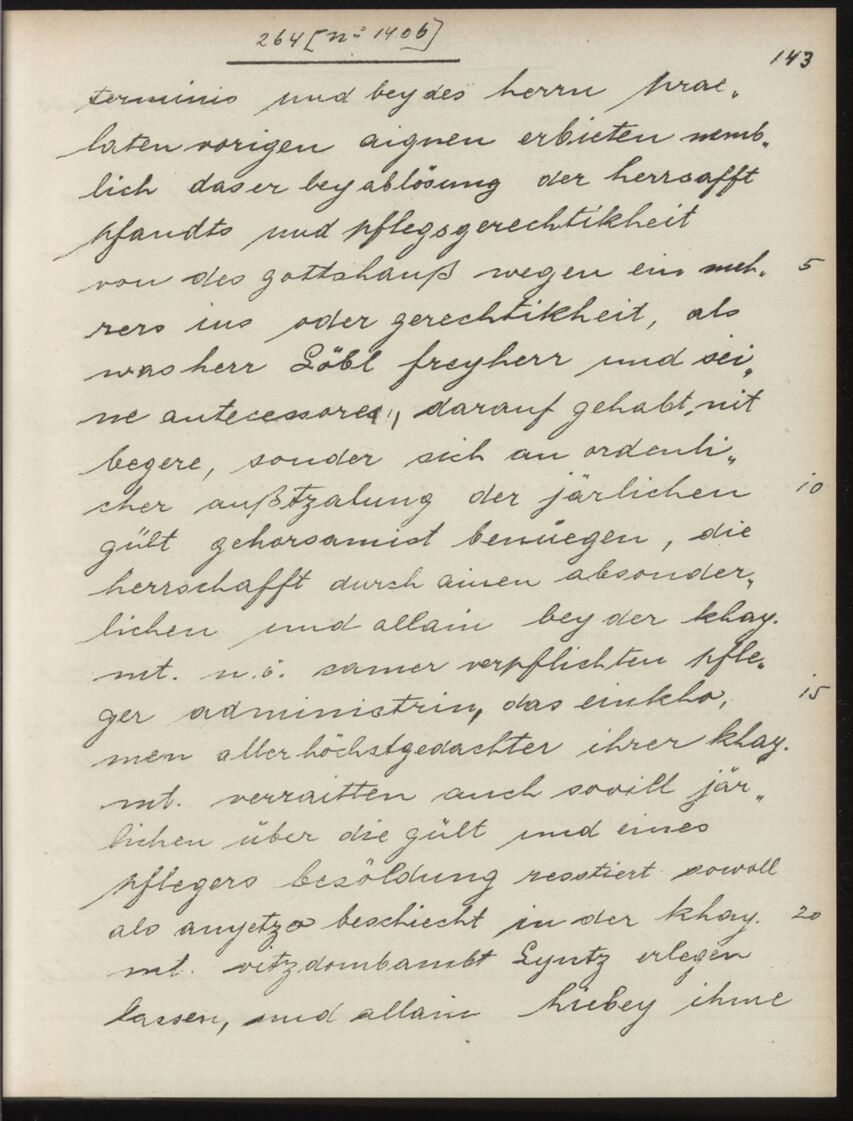 264 [nº 1406]
143
terminis und bey des herrn prae„
laten vorigen aignen erbieten nemb„
lich das er bey ablösung der herrsafft
pfandts und pflegsgerechtikheit
von des gottshauß wegen ein meh„ 5
rers ius oder gerechtikheit, als
was herr Löbl freyherr und sei„
ne antecessores, darauf gehabt, nit
begere, sonder sich an ordenli„
cher außtzalung der järlichen 10
gült gehorsamist benüegen, die
herrschafft durch ainen absonder„
lichen und allain bey der khay.
mt. n.ö. camer verpflichten pfle„
ger administrirn, das einkho„ 15
men allerhöchstgedachter ihrer khay.
mt. verraitten auch sovill jär„
lichen über die gült und eines
pflegers besöldung resstiert sowoll
als anyetzo beschiecht in der khay. 20
mt. vitzdombambt Lyntz erlegen
lassen, und allain hiebey ihme